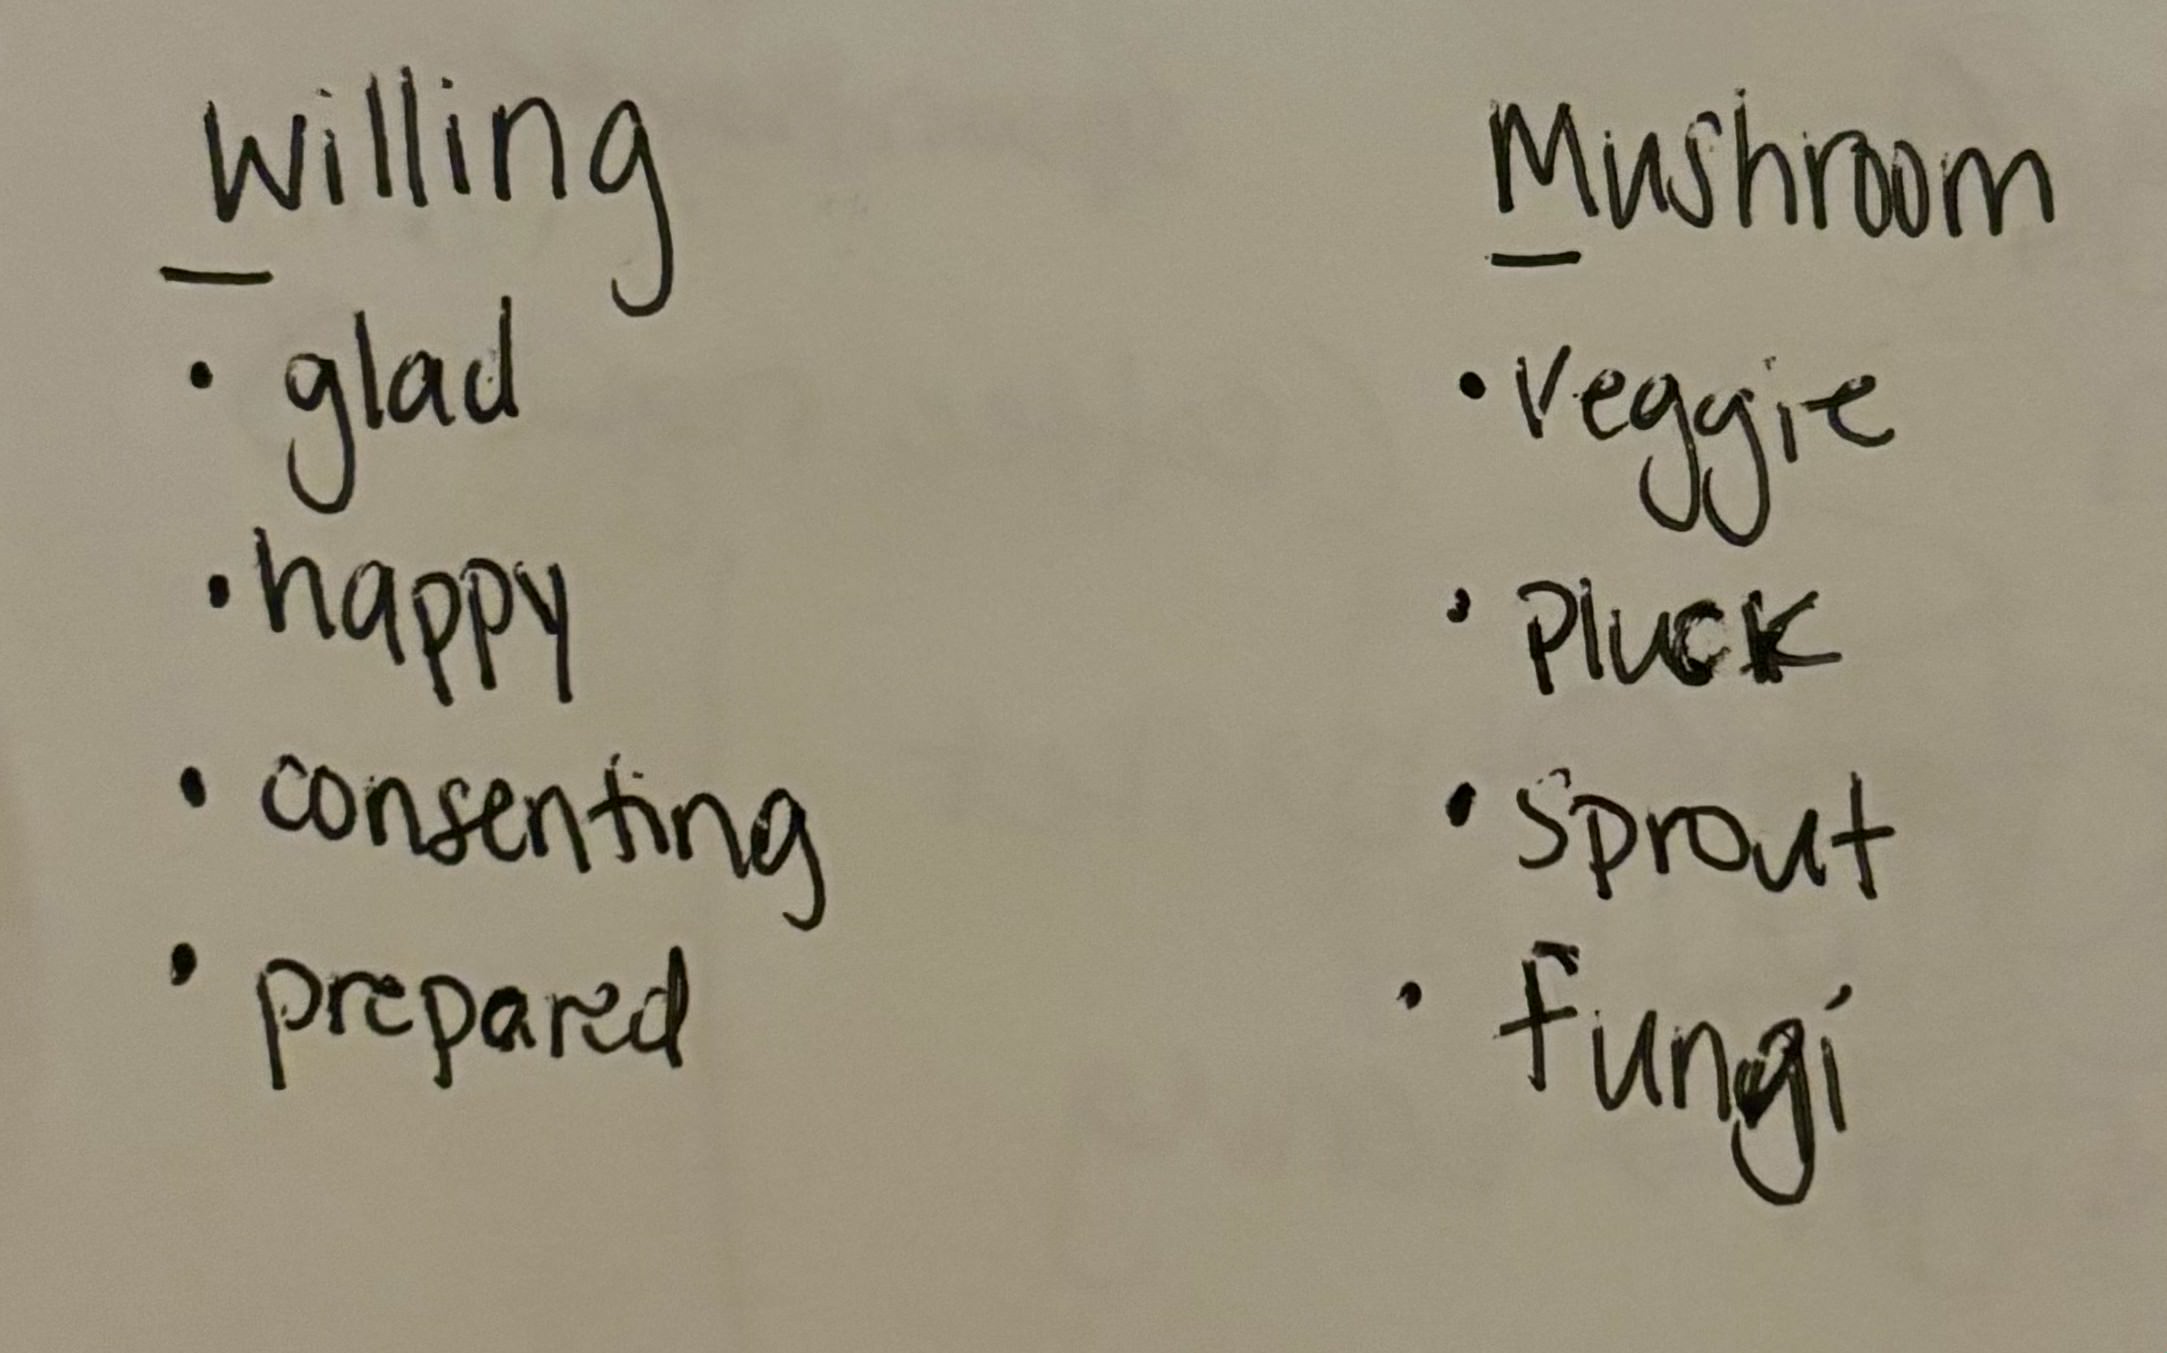 Willing
• glad
• happy
• consenting
• prepared
Mushroom
• Veggie
• Pluck
• Sprout
• Fungi